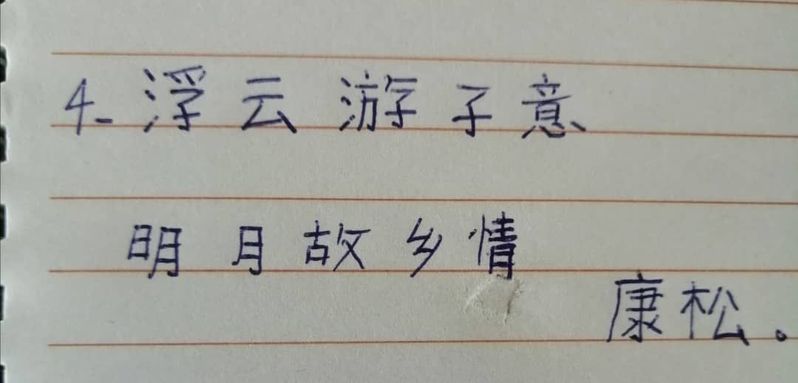 4. 浮云游子意
明月故乡情
康松。